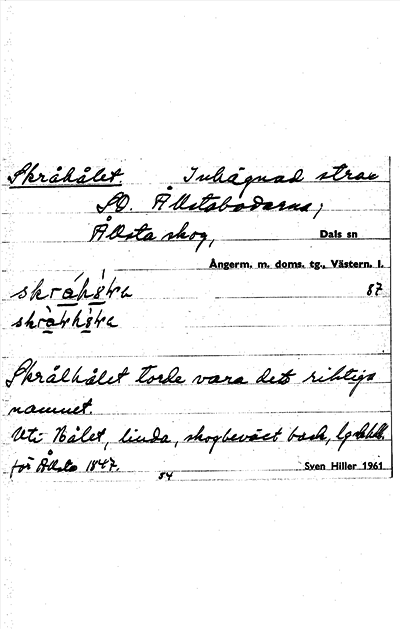 Skråhålet. Inhägnad strax
SO. Ållstabodarna,
Ållsta skog, Dals sn
Ångerm. m. doms. tg., Västern. l.
87
Skrålhålet torde vara det riktiga
namnet.
Uti Hålet, linda, skogbeväxt back,
för Ållsta 1847. Sven Hiller 1961
54